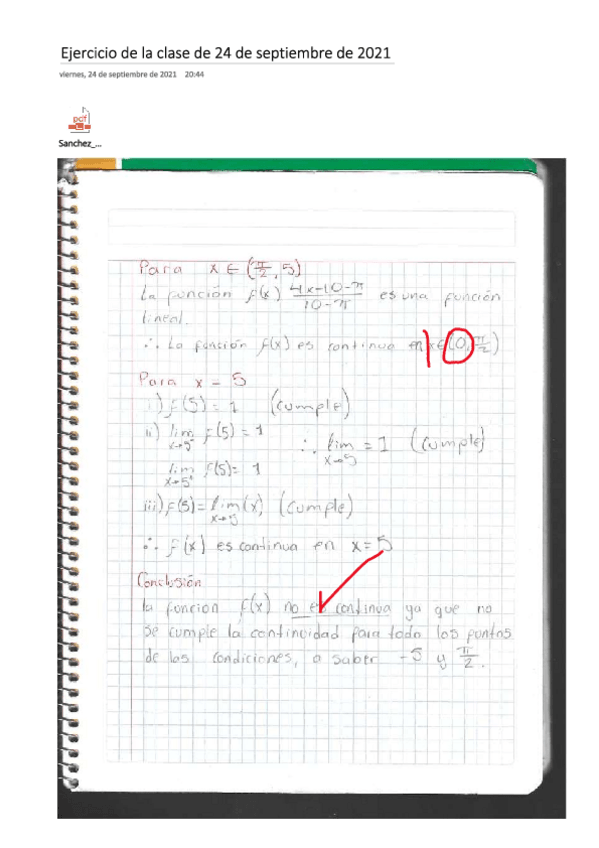 Ejercicio de la clase de 24 de septiembre de 2021
viernes, 24 de septiembre de 2021 20:44
pdf
Sanchez_...
Para x ∈ (π/2, 5)
La función f(x) (4x-10-π)/(10-π) es una función
lineal.
∴ La función f(x) es continua en x∈(0, π/2)
Para x = 5
i) f(5) = 1 (cumple)
ii) lim x→5⁻ f(5) = 1 ∴ lim x→5 = 1 (cumple)
lim x→5⁺ f(5) = 1
iii) f(5) = lim x→5 (x) (cumple)
∴ f(x) es continua en x = 5
Conclusión
la función f(x) no es continua ya que no
se cumple la continuidad para todo los puntos
de las condiciones, a saber -5 y π/2.